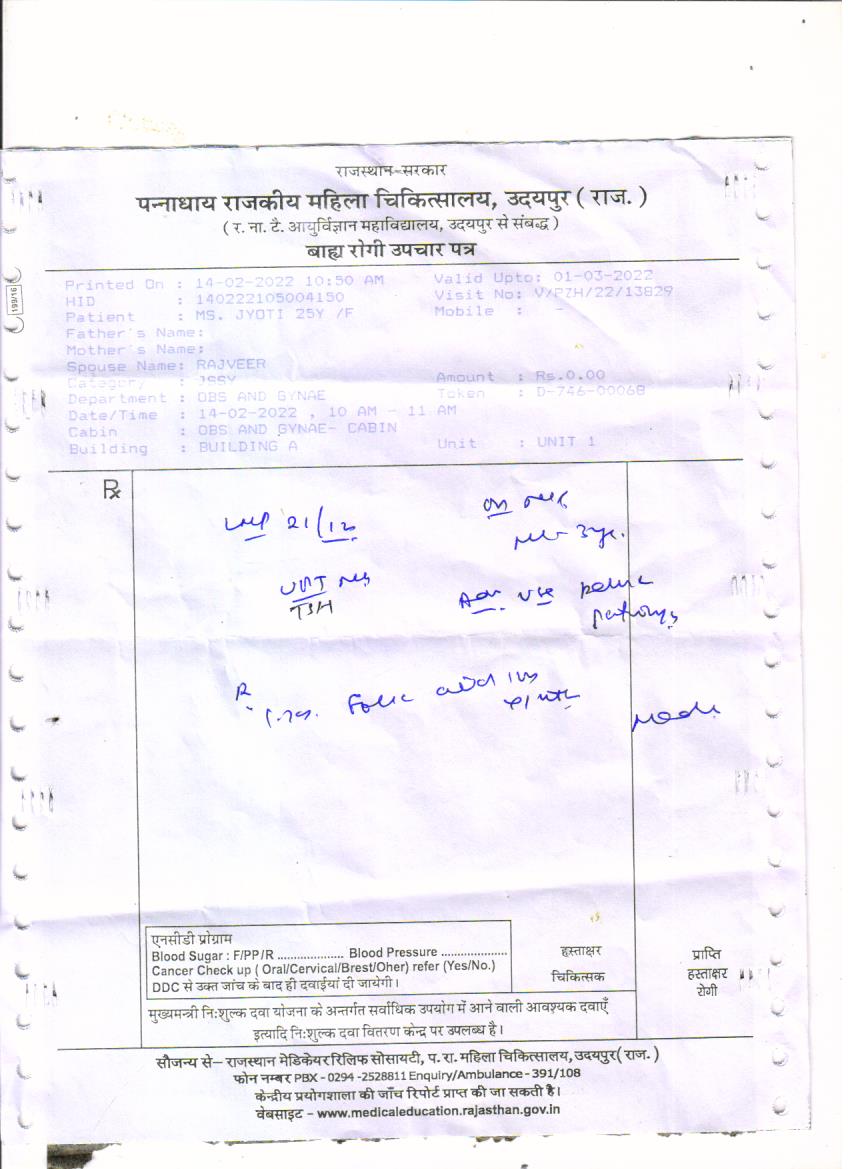 राजस्थान-सरकार
पन्नाधाय राजकीय महिला चिकित्सालय, उदयपुर ( राज. )
( र. ना. टै. आयुर्विज्ञान महाविद्यालय, उदयपुर से संबद्ध )
बाह्य रोगी उपचार पत्र
199/16
Printed On : 14-02-2022 10:50 AM Valid Upto: 01-03-2022
HID : 140222105004150 Visit No: V/PZH/22/13829
Patient : MS. JYOTI 25Y /F Mobile : -
Father's Name:
Mother's Name:
Spouse Name: RAJVEER
Category : JSSY Amount : Rs.0.00
Department : OBS AND GYNAE Token : D-746-00068
Date/Time : 14-02-2022 , 10 AM - 11 AM
Cabin : OBS AND GYNAE- CABIN
Building : BUILDING A Unit : UNIT 1
℞
LMP 21/12
UPT
TSH
Adv. pelvic
Folic acid
एनसीडी प्रोग्राम
Blood Sugar : F/PP/R .................... Blood Pressure ....................
Cancer Check up ( Oral/Cervical/Brest/Oher) refer (Yes/No.)
DDC से उक्त जांच के बाद ही दवाईयां दी जायेगी।
हस्ताक्षर
चिकित्सक
प्राप्ति
हस्ताक्षर
रोगी
मुख्यमन्त्री निःशुल्क दवा योजना के अन्तर्गत सर्वाधिक उपयोग में आने वाली आवश्यक दवाएँ
इत्यादि निःशुल्क दवा वितरण केन्द्र पर उपलब्ध है।
सौजन्य से– राजस्थान मेडिकेयर रिलिफ सोसायटी, प. रा. महिला चिकित्सालय, उदयपुर( राज. )
फोन नम्बर PBX - 0294 -2528811 Enquiry/Ambulance - 391/108
केन्दीय प्रयोगशाला की जाँच रिपोर्ट प्राप्त की जा सकती है।
वेबसाइट – www.medicaleducation.rajasthan.gov.in